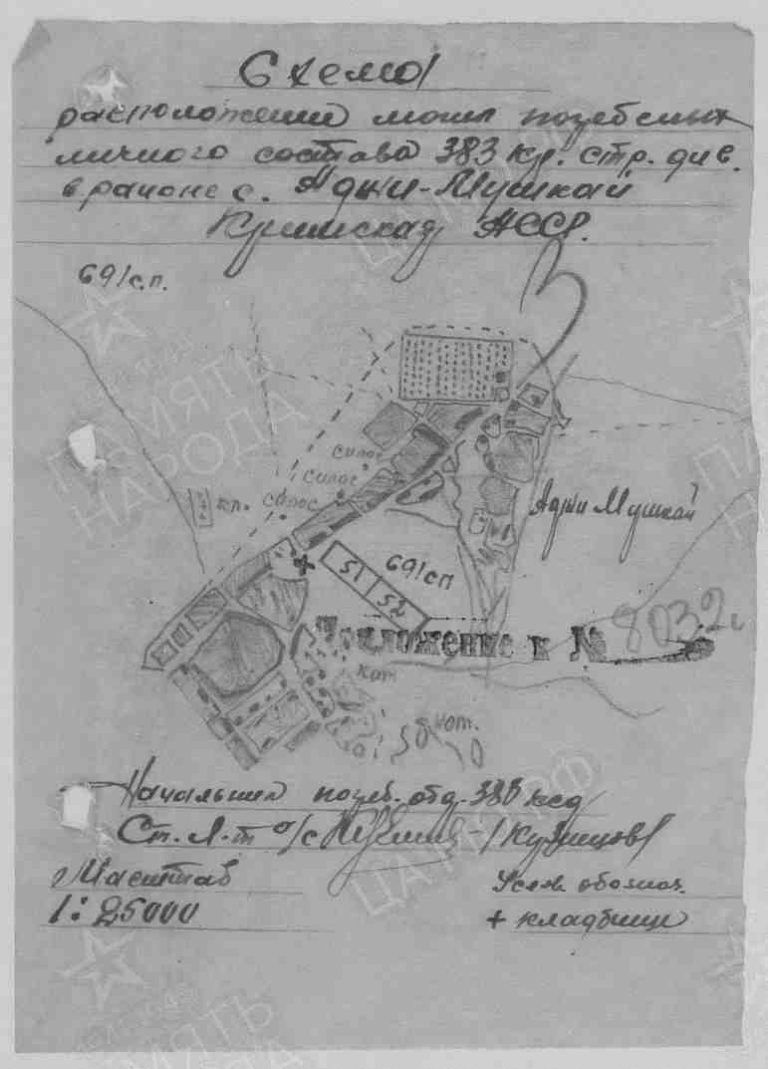 Схема
расположения могил погребенных
личного состава 383 кр. стр. див.
в районе с. Аджи-Мушкай
Крымская АССР.
691 с.п.
силос
силос
силос
кл.
Аджи Мушкай
51 52
691 сп
Приложение к № 8032
кот
кот.
Начальник погреб. отд. 383 ксд
Ст. Л-т а/с /Кузнецов/
Масштаб
1:25000
Услов. обознач.
+ кладбище
ПАМЯТЬ
НАРОДА
ПАМЯТЬ